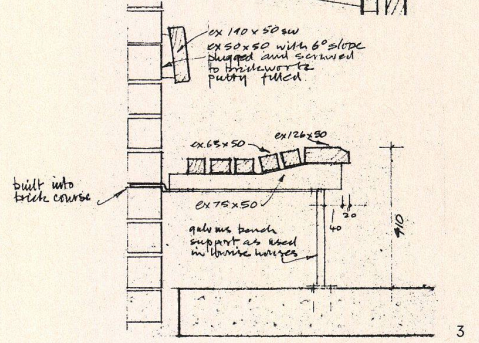 ex 140 x 50 sw
ex 50 x 50 with 6° slope
plugged and screwed
to brickwork
putty filled
ex 63 x 50
ex 126 x 50
built into
brick course
ex 75 x 50
galvans bench
support as used
in lowrise houses
40
20
410
3